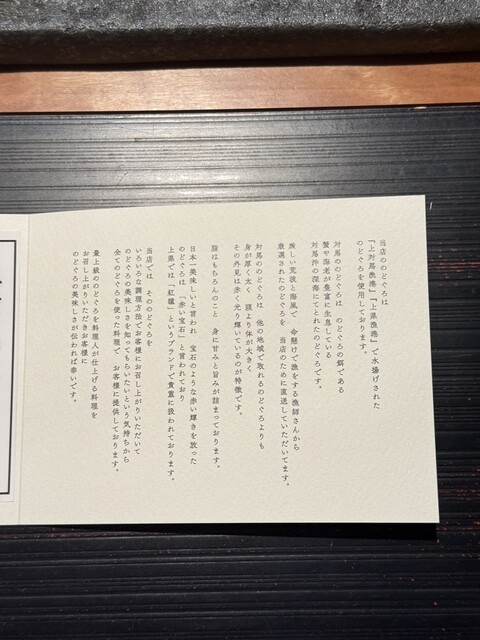 当店ののどぐろは
「上対馬漁港」「上県漁港」で水揚げされた
のどぐろを使用しております。
対馬ののどぐろは のどぐろの餌である
蟹や海老が豊富に生息している
対馬沖の深海にてとれたのどぐろです。
厳しい荒波と海風で 命懸けで漁をする漁師さんから
厳選されたのどぐろを 当店のために直送していただいてます。
対馬ののどぐろは 他の地域で取れるのどぐろよりも
身が厚く太く 頭より体が大きく
その外見は赤く光り輝いているのが特徴です。
脂はもちろんのこと 身に甘みと旨みが詰まっております。
日本一美味しいと言われ 宝石のような赤い輝きを放った
のどぐろは 「赤い宝石」と言われており
上県では「紅瞳」というブランドで貴重に扱われております。
当店では そののどぐろを
いろいろな調理方法でお客様にお召し上がりいただいて
のどぐろの美味しさを知ってもらいたいという気持ちから
全てのどぐろを使った料理で お客様に提供しております。
最上級のどぐろを料理人が仕上げる料理を
お召し上がりいただきお客様に
のどぐろの美味しさが伝われば幸いです。